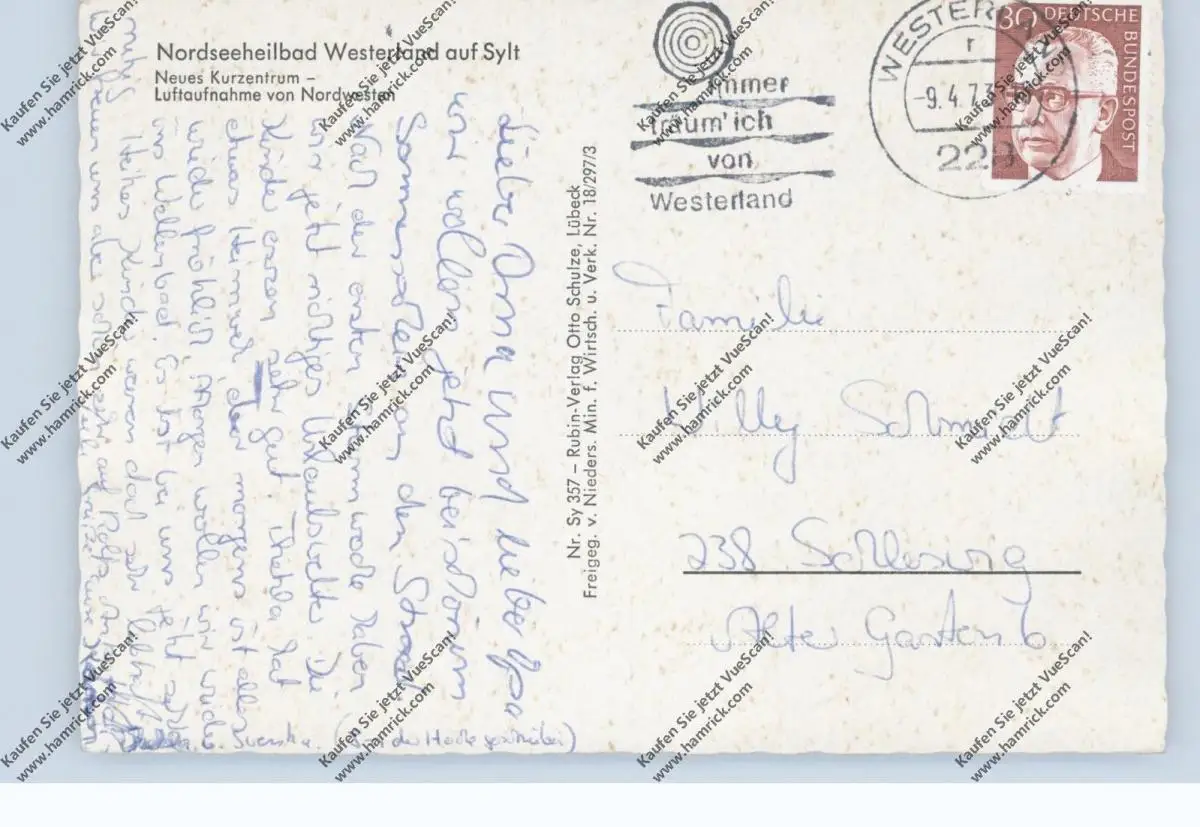 Nordseeheilbad Westerland auf Sylt
Neues Kurzentrum –
Luftaufnahme von Nordwesten
Immer
träum' ich
von
Westerland
WESTERL
-9.4.73
228
30 DEUTSCHE
BUNDESPOST
Nr. Sy 357 – Rubin-Verlag Otto Schulze, Lübeck
Freigeg. v. Nieders. Min. f. Wirtsch. u. Verk. Nr. 18/297/3
Liebe Oma und lieber Opa
wir wollen jetzt bei schönem
Sonnenschein an den Strand.
Nach der ersten Sturmwoche haben
wir jetzt richtiges Urlaubswetter. Die
Kinder essen sehr gut. Thekla hat
etwas Heimweh, aber morgens ist alles
wieder fröhlich. Morgen wollen wir wieder
ins Wellenbad. Es ist bei uns jetzt sehr
Kinder waren doch sehr lebhaft.
Wir freuen uns alle schon sehr auf
Familie
Willy Schmidt
238 Schleswig
Alter Garten 6
Kaufen Sie jetzt VueScan!
www.hamrick.com